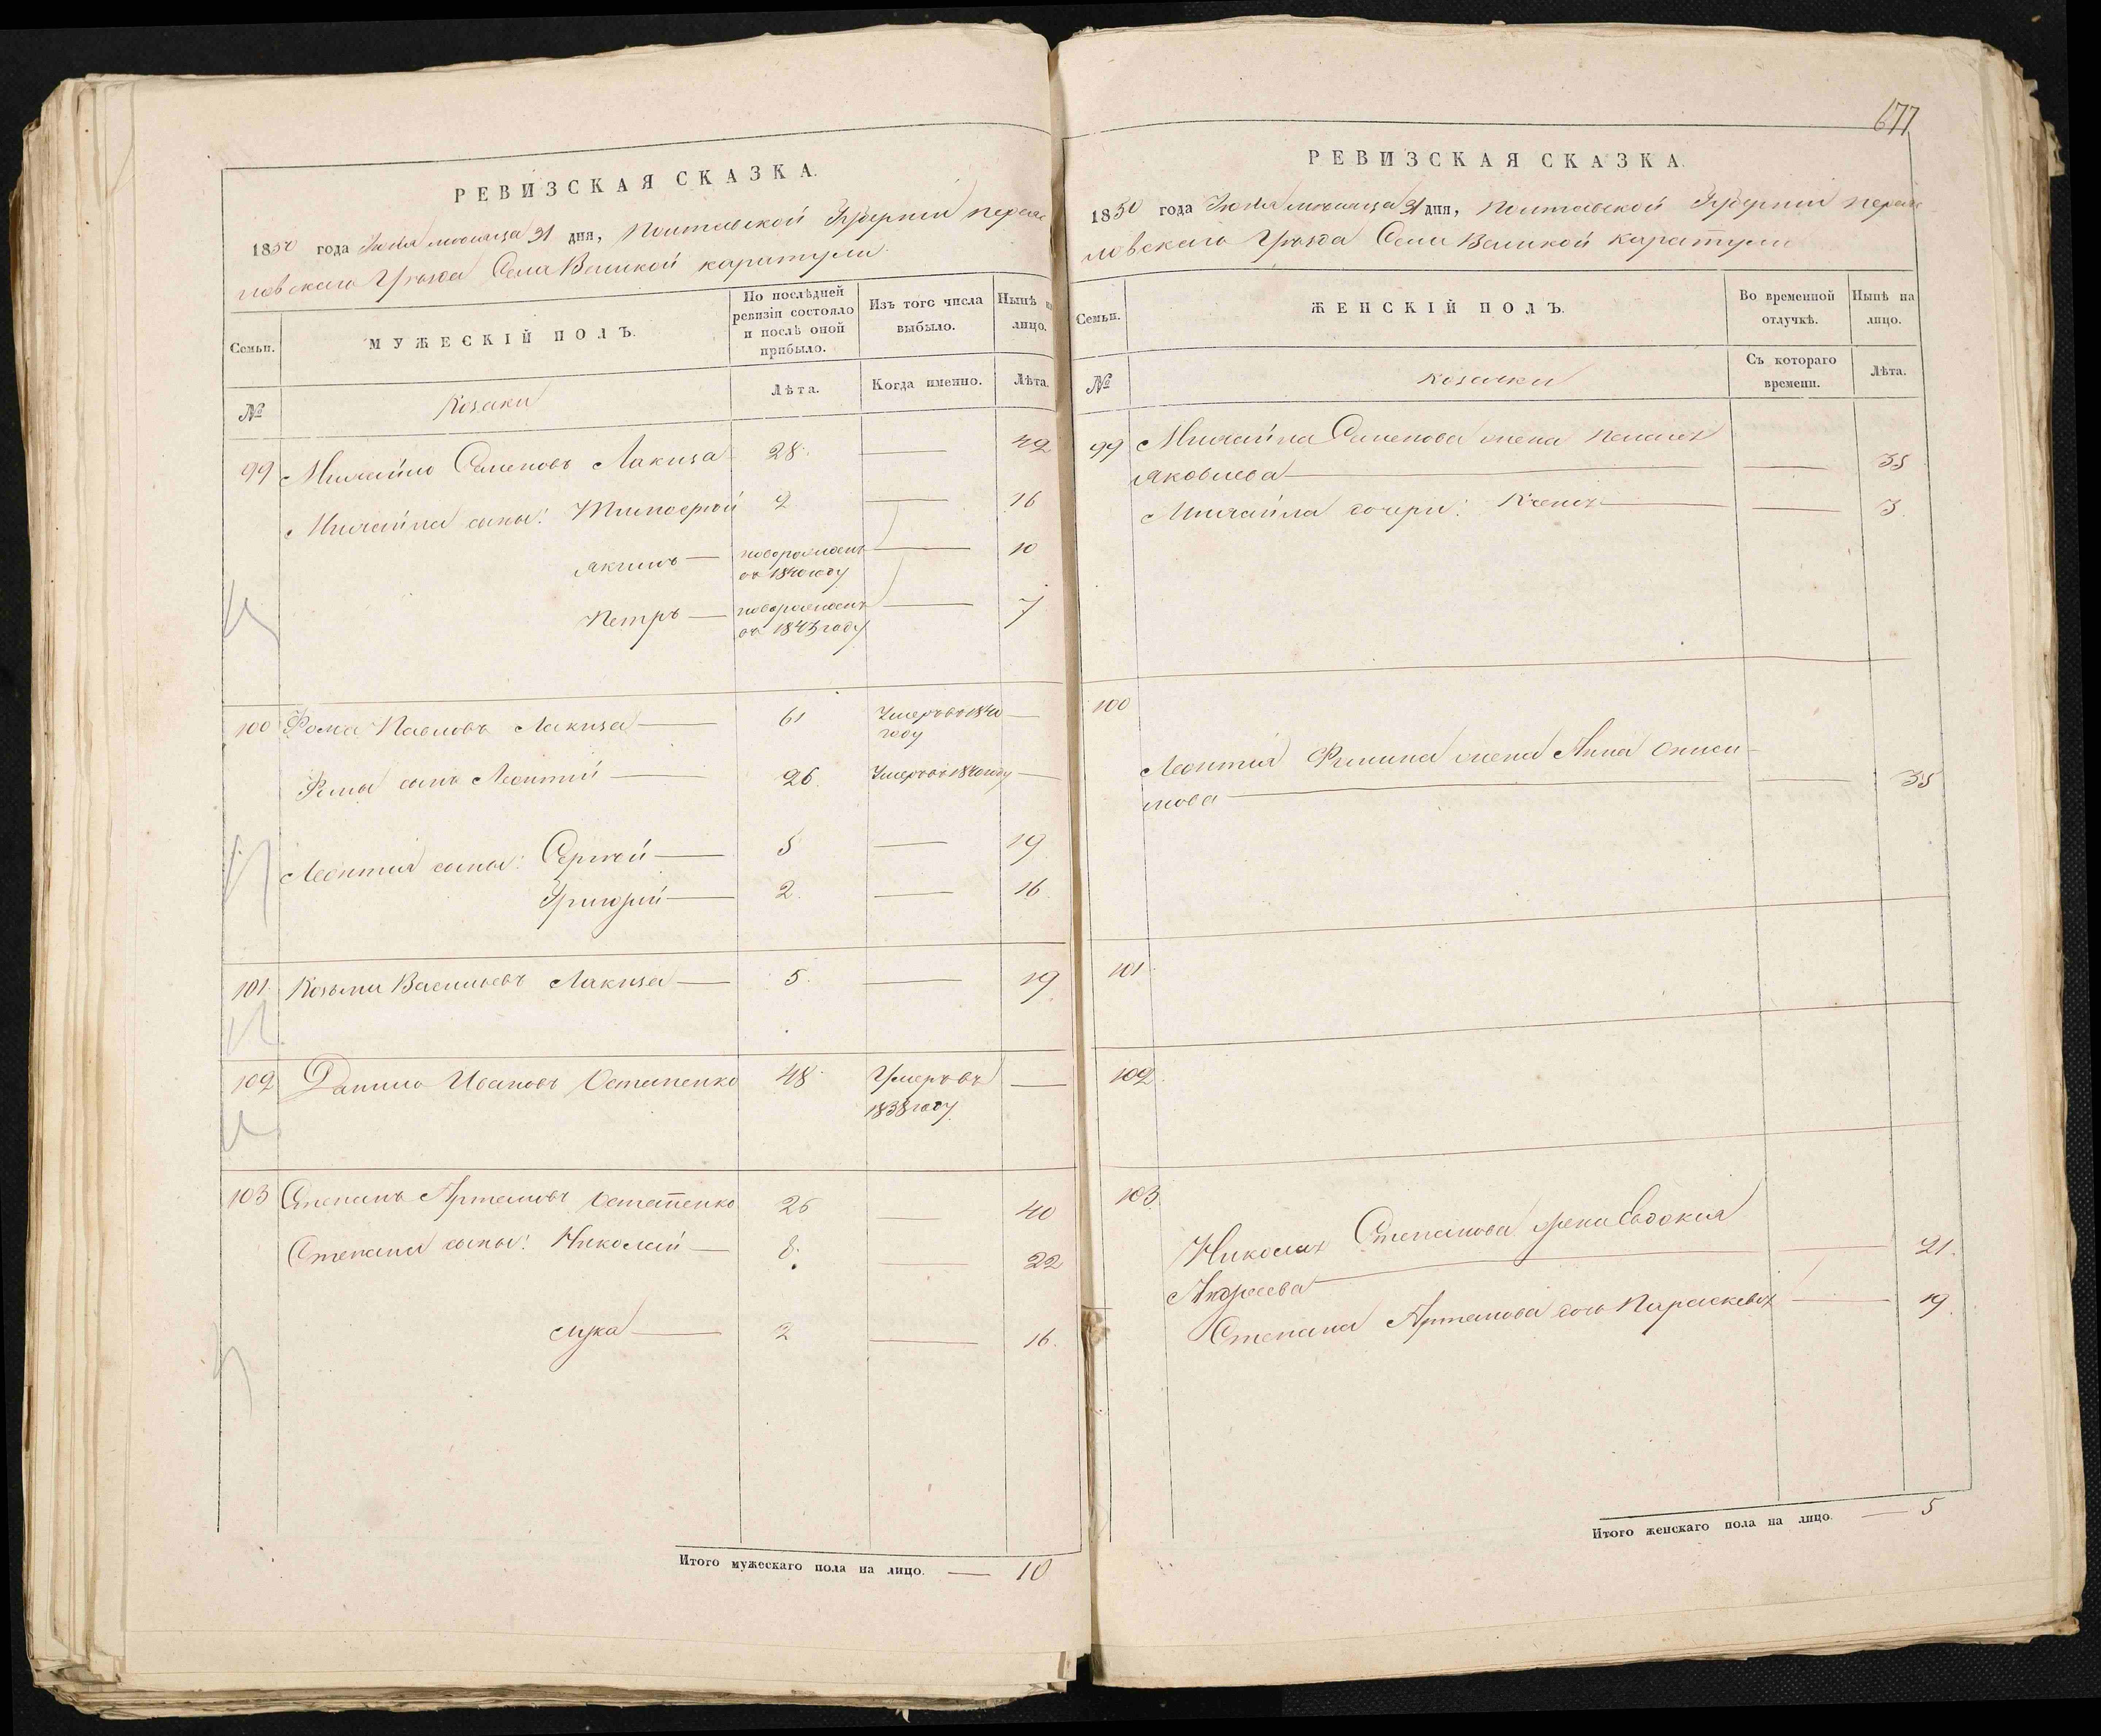 РЕВИЗСКАЯ СКАЗКА.
1850 года Июля месяца 31 дня, Полтавской Губернии Переяс
ловскаго Уѣзда Села Великой Каратули.
Семьи. МУЖЕСКІЙ ПОЛЪ. По послѣдней ревизіи состояло и послѣ оной прибыло. Изъ того числа выбыло. Нынѣ на лицо.
№ Козаки Лѣта. Когда именно. Лѣта.
99 Михайло Семеновъ Лакиза 28. — 42
Михайла сыны: Тимофѣй 2 — 16
Якимъ — новорожденъ — 10
въ 1840 году
Петръ — новорожденъ — 7
въ 1843 году
100 Фома Павловъ Лакиза — 61 Умеръ въ 1840 —
году
Фомы сынъ Леонтий — 26. Умеръ въ 1840 году —
Леонтия сыны: Сергѣй — 5 — 19
Григорий — 2. — 16
101. Козьма Васильевъ Лакиза — 5. — 19
102 Данило Ивановъ Остапенко 48. Умеръ въ —
1838 году
103 Степанъ Артемовъ Остапенко 26 — 40
Степана сыны: Николай — 8. — 22
Лука — 2 — 16.
Итого мужескаго пола на лицо. — 10
677
РЕВИЗСКАЯ СКАЗКА.
1850 года Июля месяца 31 дня, Полтавской Губернии Переяс
ловскаго Уѣзда Села Великой Каратули
Семьи. ЖЕНСКІЙ ПОЛЪ. Во временной отлучкѣ. Нынѣ на лицо.
№ Козачки Съ котораго времени. Лѣта.
99 Михайла Семенова жена Пелагея
Яковлева — — 35
Михайла дочери: Ксения — — 3.
100
Леонтия Фомина жена Анна
— — 35
101.
102.
103.
Николая Степанова жена Евдокия
Андреева — — 21.
Степана Артемова дочь Параскевия — 19.
Итого женскаго пола на лицо. — 5